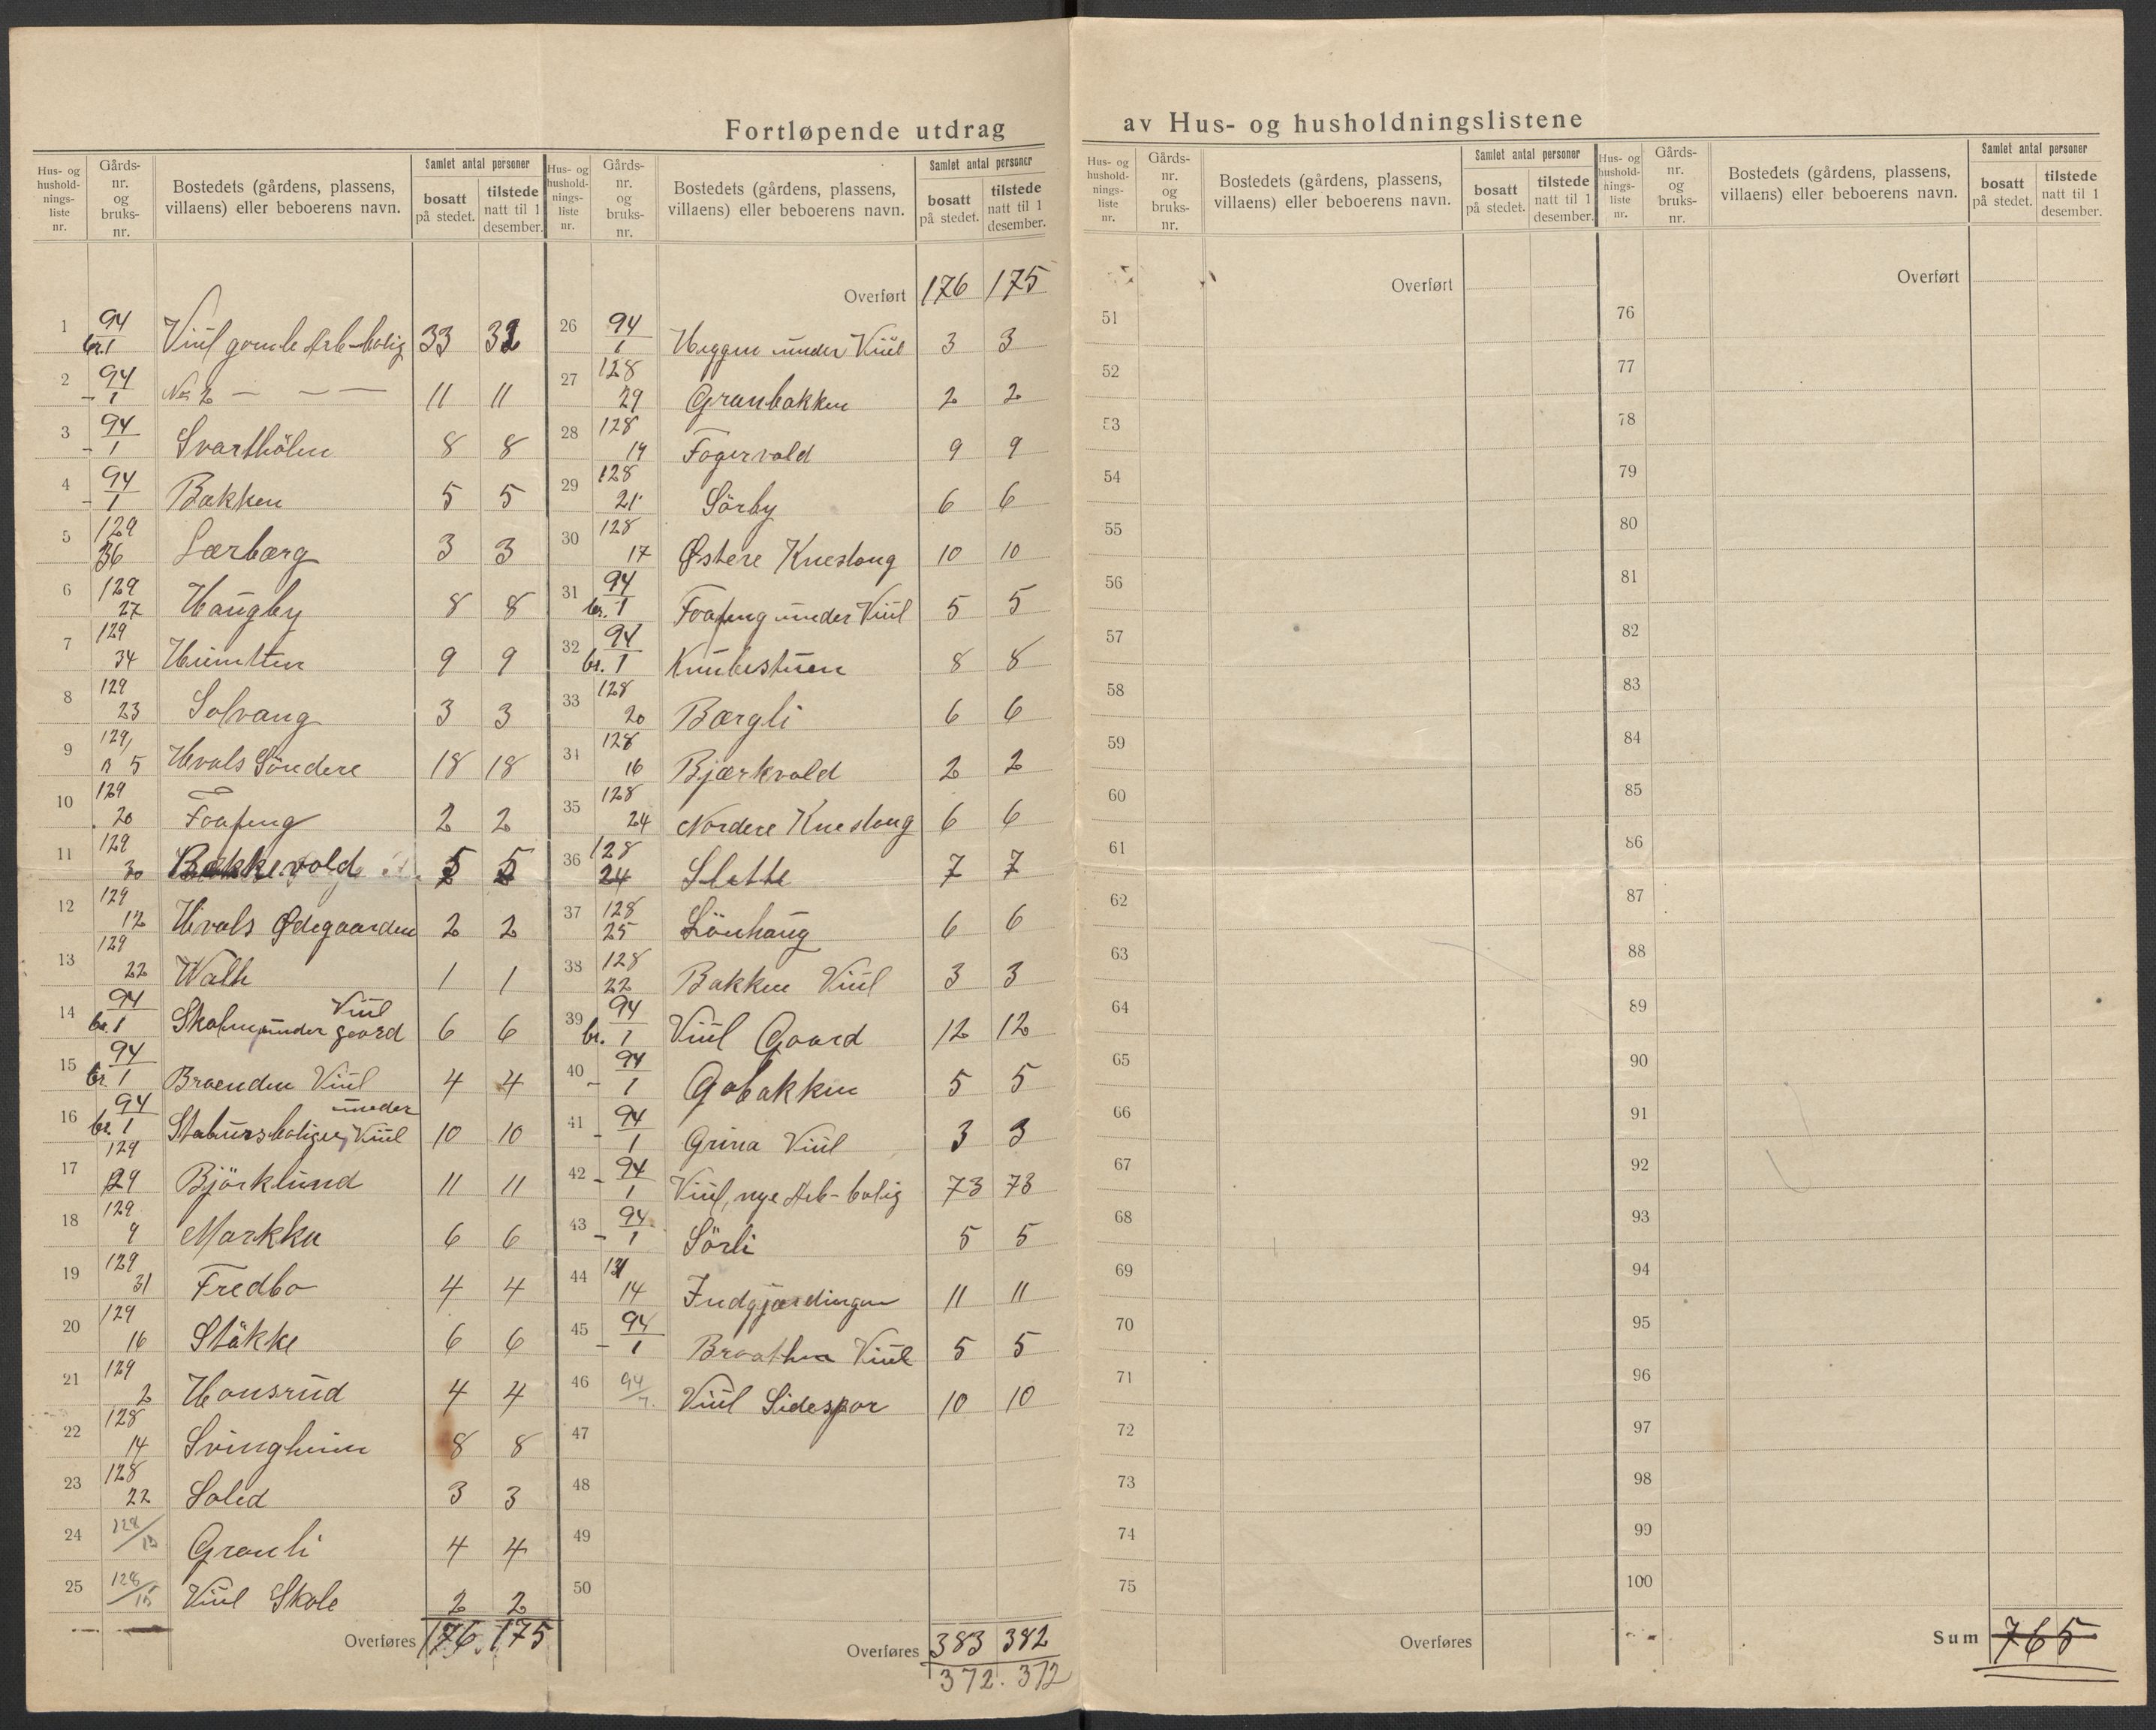 Fortløpende utdrag av Hus- og husholdningslistene
Hus- og hushold-nings-liste nr. Gårds-nr. og bruks-nr. Bostedets (gårdens, plassens, villaens) eller beboerens navn. Samlet antal personer bosatt på stedet. tilstede natt til 1 desember.
1 94 br. 1 Viul gamle Arb-bolig 33 32
2 94 - 1 No 2 — — — 11 11
3 94 - 1 Svarthölen 8 8
4 94 - 1 Bakken 5 5
5 129 36 Lærbærg 3 3
6 129 27 Haugby 8 8
7 129 34 9 9
8 129 23 Solvang 3 3
9 129, 5 Hvals Söndere 18 18
10 129 20 Foafeng 2 2
11 129 30 Bækkevold 5 5
12 129 12 Hvals Ødegaarden 2 2
13 129 22 Walh 1 1
14 94 br. 1 Skolen under Viul gaard 6 6
15 94 br. 1 Braenden Viul 4 4
16 94 br. 1 Stabursboliger under Viul 10 10
17 129 29 Björklund 11 11
18 129 9 Marka 6 6
19 129 31 Fredbo 4 4
20 129 16 Ståkke 6 6
21 129 2 Honsrud 4 4
22 128 14 Svingheim 8 8
23 128 22 Soled 3 3
24 128/13 Granli 4 4
25 128/15 Viul Skole 2 2
Overføres 176 175
Hus- og hushold-nings-liste nr. Gårds-nr. og bruks-nr. Bostedets (gårdens, plassens, villaens) eller beboerens navn. Samlet antal personer bosatt på stedet. tilstede natt til 1 desember.
Overført 176 175
26 94 1 Heggen under Viul 3 3
27 128 29 Granbakken 2 2
28 128 19 Fagervold 9 9
29 128 21 Sörby 6 6
30 128 17 Østere Kneslang 10 10
31 94 br. 1 Foafeng under Viul 5 5
32 94 br. 1 Knubestuen 8 8
33 128 20 Bærgli 6 6
34 128 16 Bjærkvold 2 2
35 128 24 Nordere Kneslang 6 6
36 128 24 Slette 7 7
37 128 25 Lönhaug 6 6
38 128 22 Bakken Viul 3 3
39 94 br. 1 Viul Gaard 12 12
40 94 - 1 Gobakken 5 5
41 94 - 1 Grina Viul 3 3
42 94 - 1 Viul, nye Arb-bolig 73 73
43 94 - 1 Sörli 5 5
44 131 14 Indgjærdingen 11 11
45 94 - 1 Braathen Viul 5 5
46 94/7. Viul Sidespor 10 10
47
48
49
50
Overføres 383 382
372. 372
Hus- og hushold-nings-liste nr. Gårds-nr. og bruks-nr. Bostedets (gårdens, plassens, villaens) eller beboerens navn. Samlet antal personer bosatt på stedet. tilstede natt til 1 desember.
Overført
51
52
53
54
55
56
57
58
59
60
61
62
63
64
65
66
67
68
69
70
71
72
73
74
75
Overføres
Hus- og hushold-nings-liste nr. Gårds-nr. og bruks-nr. Bostedets (gårdens, plassens, villaens) eller beboerens navn. Samlet antal personer bosatt på stedet. tilstede natt til 1 desember.
Overført
76
77
78
79
80
81
82
83
84
85
86
87
88
89
90
91
92
93
94
95
96
97
98
99
100
Sum 765